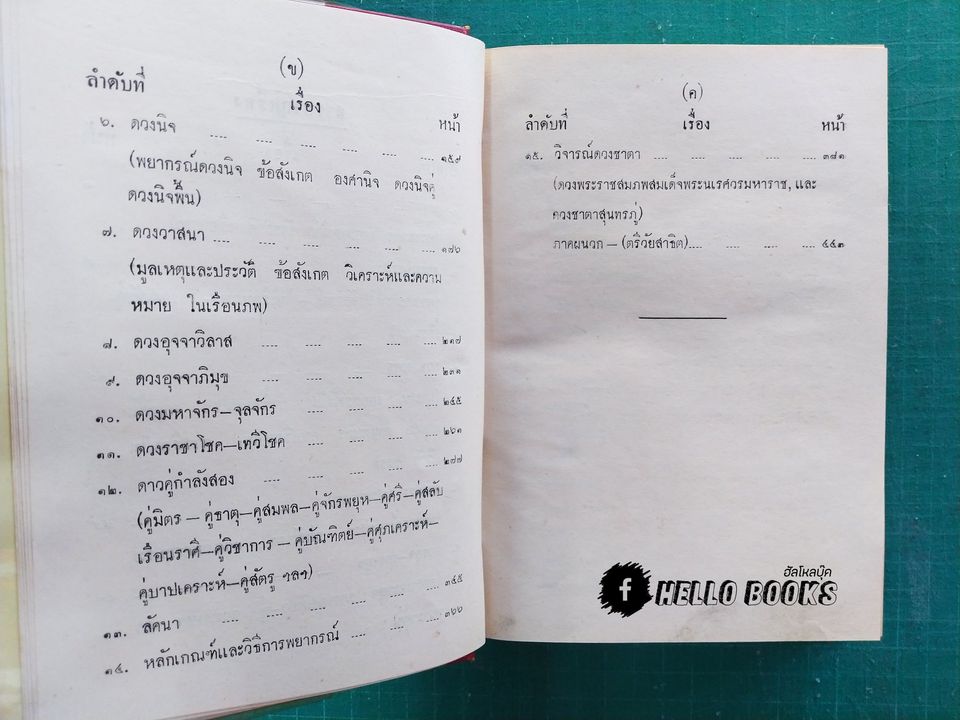 (ข)
ลำดับที่ เรื่อง หน้า
๖. ดวงนิจ .... .... .... .... .... ๑๕๙
(พยากรณ์ดวงนิจ ข้อสังเกต องศานิจ ดวงนิจคู่
ดวงนิจพื้น)
๗. ดวงวาสนา .... .... .... .... .... ๑๗๖
(มูลเหตุและประวัติ ข้อสังเกต วิเคราะห์และความ
หมาย ในเรือนภพ)
๘. ดวงอุจจาวิลาส .... .... .... .... ๒๑๗
๙. ดวงอุจจาภิมุข .... .... .... .... ๒๓๑
๑๐. ดวงมหาจักร—จุลจักร .... .... .... ๒๔๕
๑๑. ดวงราชาโชค—เทวีโชค .... .... .... ๒๖๑
๑๒. ดาวคู่กำลังสอง .... .... .... .... ๒๗๗
(คู่มิตร — คู่ธาตุ—คู่สมพล—คู่จักรพยุห—คู่ศรี—คู่สลับ
เรือนราศิ—คู่วิชาการ — คู่บัณฑิตย์—คู่ศุภเคราะห์—
คู่บาปเคราะห์—คู่สัตรู ฯลฯ)
๑๓. ลัคนา .... .... .... .... .... ๓๔๕
๑๔. หลักเกณฑ์และวิธีการพยากรณ์ .... .... .... ๓๖๖
(ค)
ลำดับที่ เรื่อง หน้า
๑๕. วิจารณ์ดวงชาตา .... .... .... .... ๓๘๑
(ดวงพระราชสมภพสมเด็จพระนเรศวรมหาราช, และ
ดวงชาตาสุนทรภู่)
ภาคผนวก — (ตรีวัยสาธิต).... .... .... ....
ฮัลโหลบุ๊ค
f HELLO BOOKS